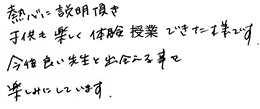 熱心に説明頂き
子供も楽しく体験授業できた様です。
今後良い先生と出会える事を
楽しみにしています。